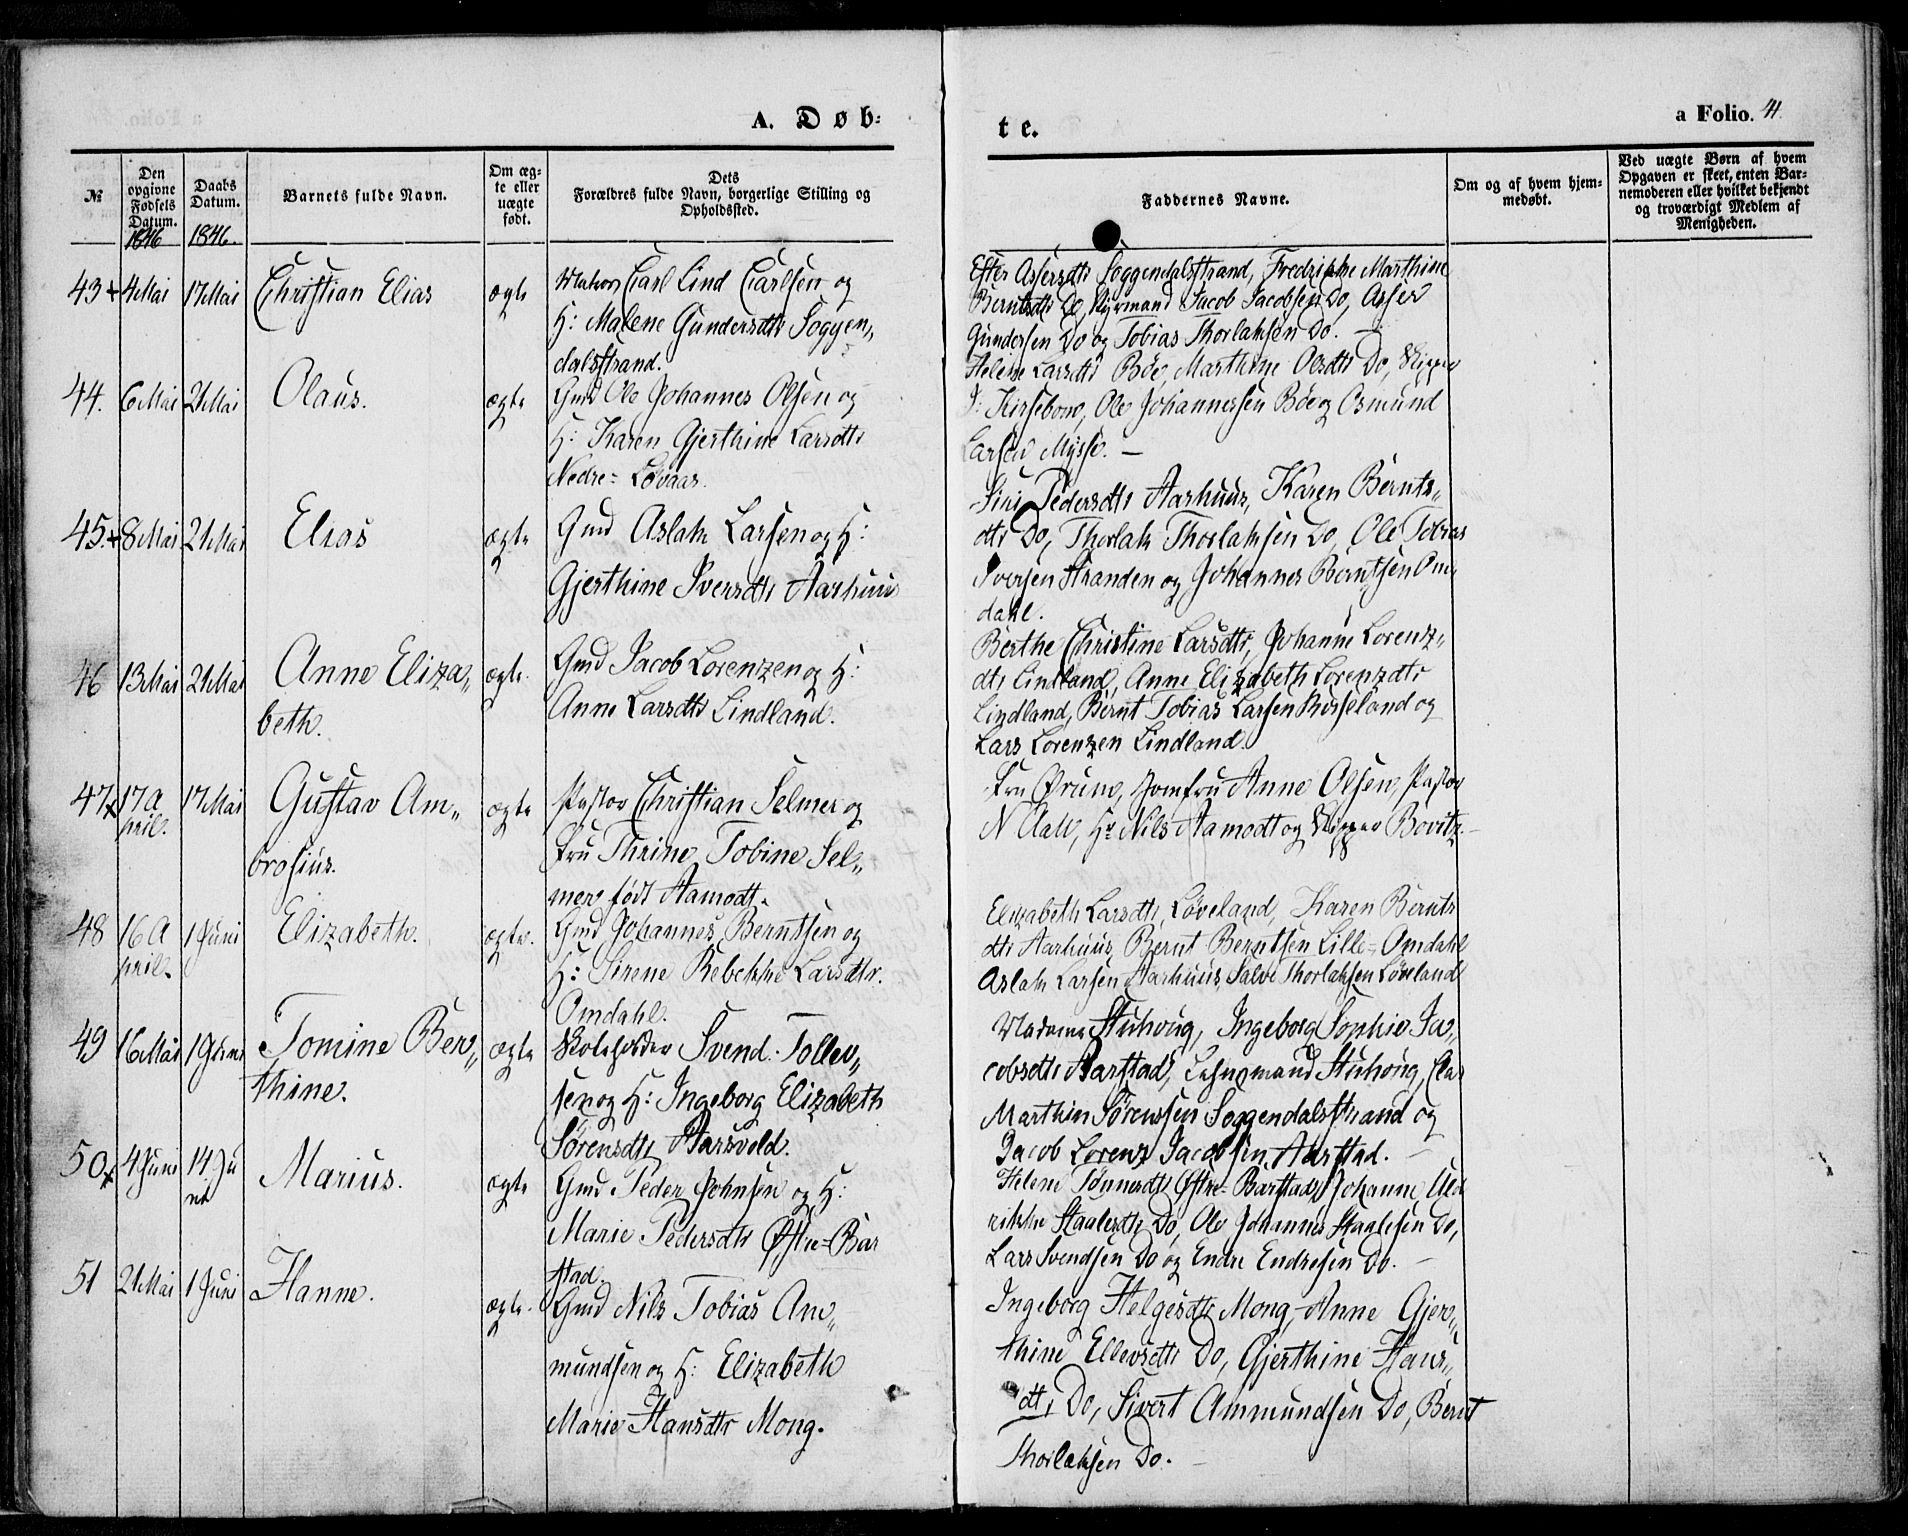 A. Døb-
te.
a Folio. 41.
№
Den opgivne Fødsels Datum.
1846
Daabs Datum.
1846.
Barnets fulde Navn.
Om ægte eller uægte født.
Dets Forældres fulde Navn, borgerlige Stilling og Opholdssted.
Faddernes Navne.
Om og af hvem hjemmedøbt.
Ved uægte Børn af hvem Opgaven er skeet, enten Barnemoderen eller hvilket bekjendt og troværdigt Medlem af Menigheden.
43+ 4 Mai 17 Mai Christian Elias ægte
Carl Lind Carlsen og
H: Malene Gundersdtr Soggen„
dalsstrand.
Assersdtr Soggendalsstrand, Fredrikke Marthine
Berntsdtr Do, Styrmand Jacob Jacobsen Do, Asser
Gundersen Do og Tobias Thorlaksen Do. —
44. 6 Mai 21 Mai Olaus. ægte
Gmd Ole Johannes Olsen og
H: Karen Gjerthine Larsdtr
Nedre= Løvaas.
Helene Larsdtr Böe, Marthine Olsdtr Do, Skipper
Kirsebom, Ole Johannessen Böe og Osmund
Larsen Mysse. —
45.+ 8 Mai 21 Mai Elias ægte
Gmd Aslak Larsen og H:
Gjerthine Iversdtr Aarhuus
Siri Pedersdtr Aarhuus, Karen Bernts„
dtr Do, Thorlak Thorlaksen Do, Ole Tobias
Iversen Stranden og Johannes Berntsen Om„
dahl.
46 13 Mai 21 Mai Anne Eliza„
beth. ægte.
Gmd Jacob Lorenzen og H:
Anne Larsdtr Lindland.
Berthe Christine Larsdtr, Johanne Lorenz„
dtr Lindland, Anne Elizabeth Lorenzdtr
Lindland, Bernt Tobias Larsen Rosseland og
Lars Lorenzen Lindland.
47+ 17 A
pril. 17 Mai Gustav Am„
brosius. ægte
Pastor Christian Selmer og
Fru Thrine Tobine Sel„
mer født Aamodt.
Fru Jomfru Anne Olsen, Pastor
N Aall, Hr Nils Aamodt og Skipper Bovitz. —
48 16 A
pril. 1 Juni Elizabeth. ægte.
Gmd Johannes Berntsen og
H: Sirene Rebekke Larsdtr.
Omdahl.
Elizabeth Larsdtr, Løveland, Karen Bernts
dtr Aarhuus, Bernt Berntsen Lille= Omdahl
Aslak Larsen Aarhuus, Salve Thorlaksen Løveland
49 16 Mai 1 Juni Tomine Ber„
thine. ægte
Skoleholder Svend Tollev„
sen og H: Ingeborg Elizabeth
Sørensdtr Aarsvold.
Madame Stuhoug, Ingeborg Sophie Ja„
cobsdtr Aarstad, Lehnsmand Stuhoug,
Marthin Sørenssen Soggendalsstrand og
Jacob Lorenz Jacobsen Aarstad. —
50+ 4 Juni 14 Ju
ni Marius. ægte
Gmd Peder Johnsen og H:
Marie Pedersdtr Østre=Bar
stad.
Helene Tønnesdtr Østre=Barstad, Johanne Uld
rikke Staalesdtr Do, Ole Johannes Staalesen Do,
Lars Svendsen Do og Endre Endresen Do. —
51 21 Mai 1 Juni Hanne. ægte.
Gmd Nils Tobias Am„
mundsen og H: Elizabeth
Marie Hansdtr Mong.
Ingeborg Helgesdtr Mong, Anne Gjer„
thine Ellevsdtr Do, Gjerthine Hans„
dtr Do, Sivert Ammundsen Do, Bernt
Thorlaksen Do. —